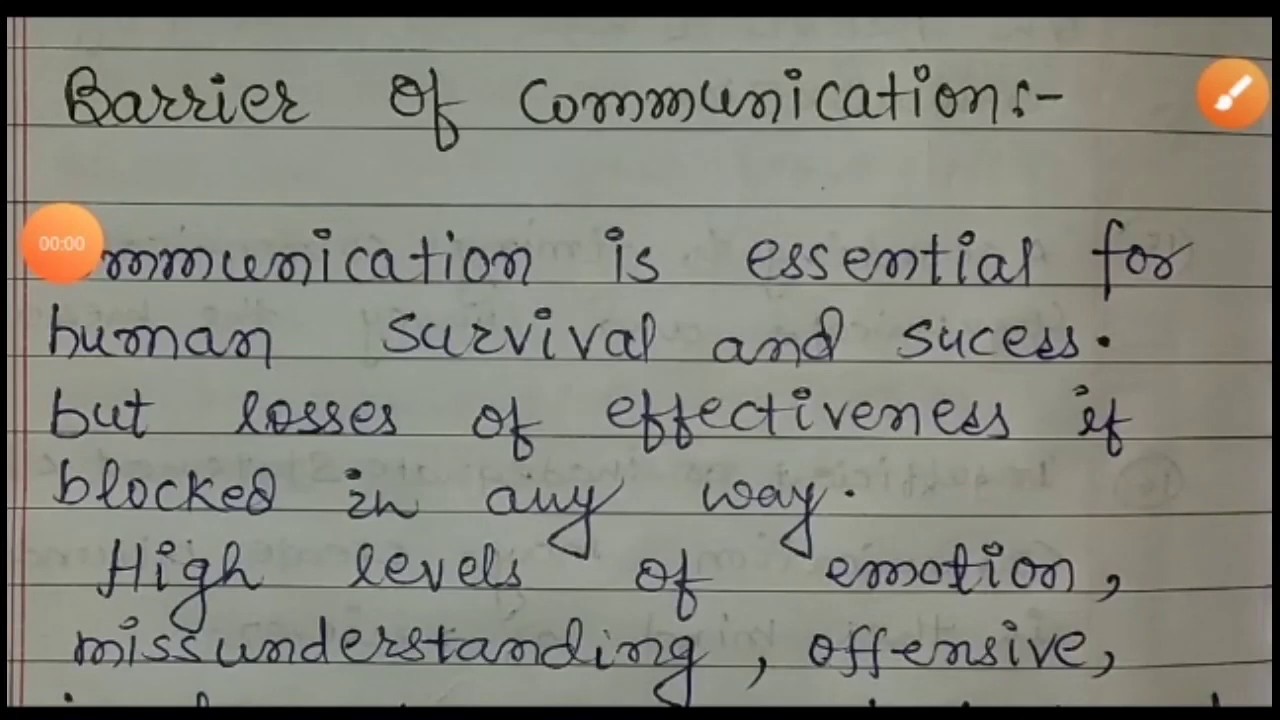 Barrier Of Communication:-
00:00
mmunication is essential for
human survival and sucess.
but losses of effectiveness if
blocked in any way.
High levels of emotion,
missunderstanding, offensive,